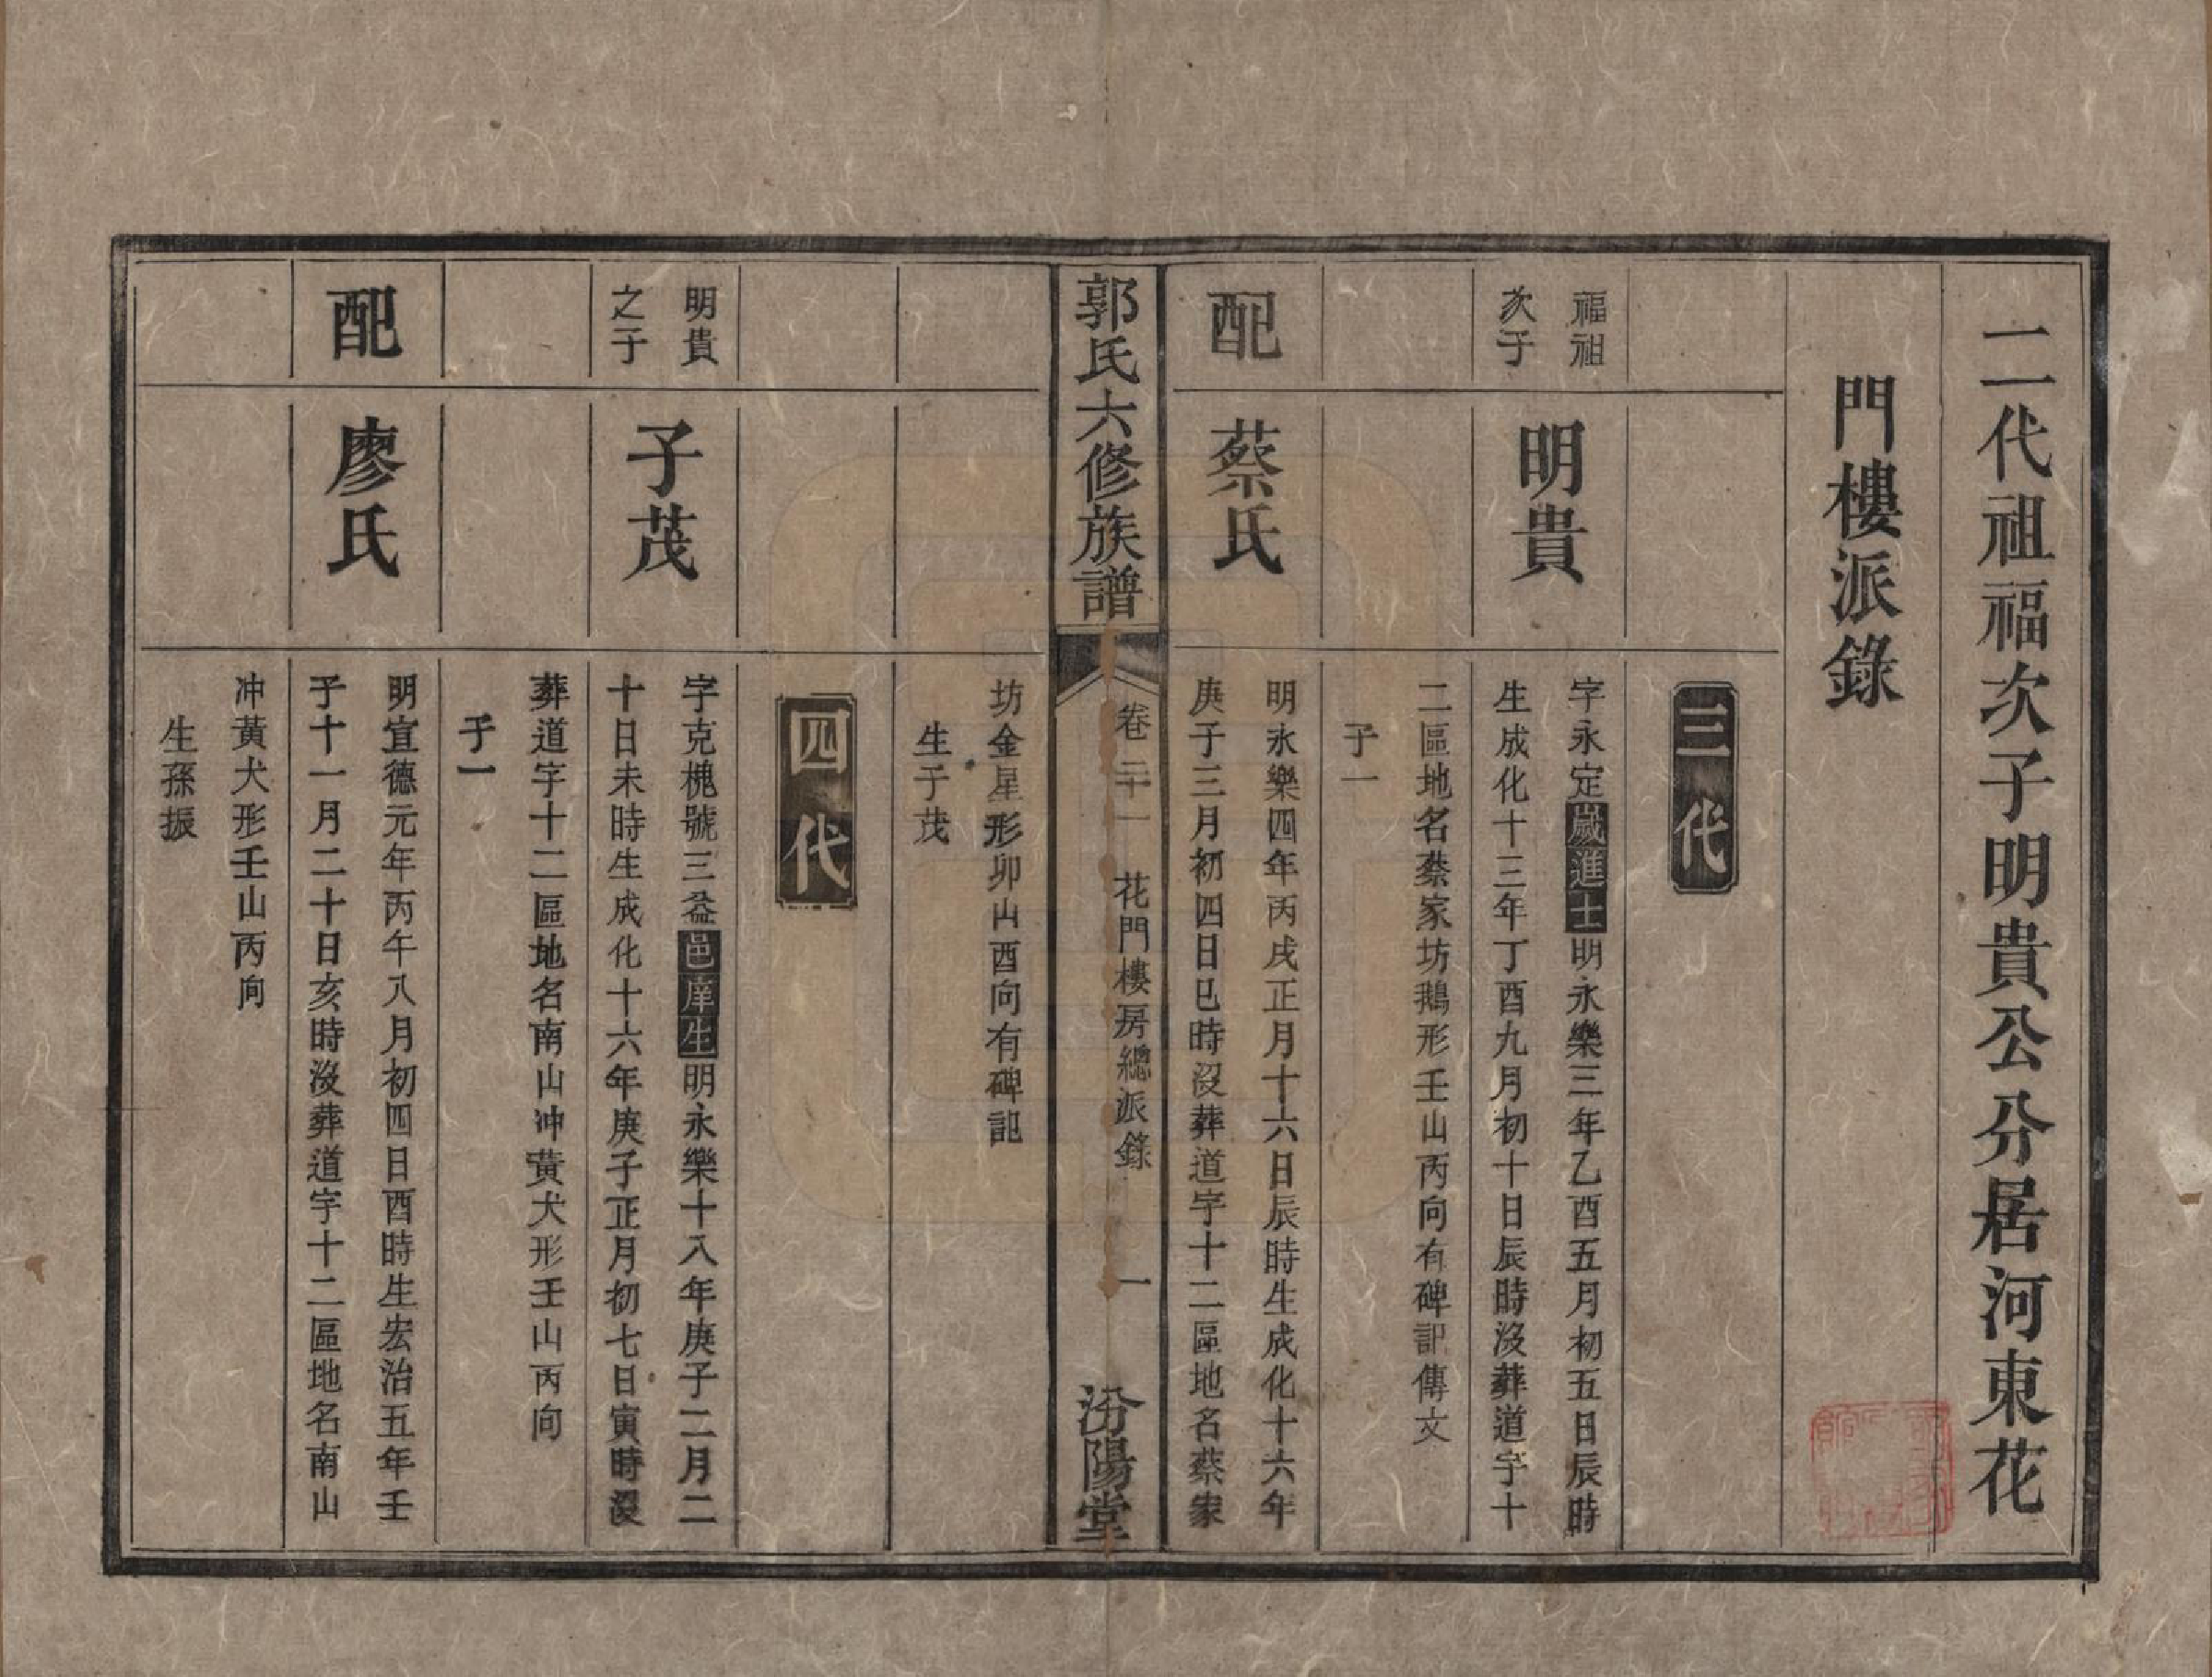 二代祖福次子明貴公分居河東花
門樓派錄
三代
福祖
次子
明貴
字永定歲進士明永樂三年乙酉五月初五日辰時
生成化十三年丁酉九月初十日辰時沒葬道字十
二區地名蔡家坊鵝形壬山丙向有碑記傳文
子一
配
蔡氏
明永樂四年丙戌正月十六日辰時生成化十六年
庚子三月初四日巳時沒葬道字十二區地名蔡家
郭氏六修族譜
卷二十一 花門樓房總派錄 一
汾陽堂
坊金星形卯山酉向有碑記
生子茂
四代
明貴
之子
子茂
字克槐號三益邑庠生明永樂十八年庚子二月二
十日未時生成化十六年庚子正月初七日寅時沒
葬道字十二區地名南山冲黃犬形壬山丙向
子一
配
廖氏
明宣德元年丙午八月初四日酉時生宏治五年壬
子十一月二十日亥時沒葬道字十二區地名南山
冲黃犬形壬山丙向
生孫振